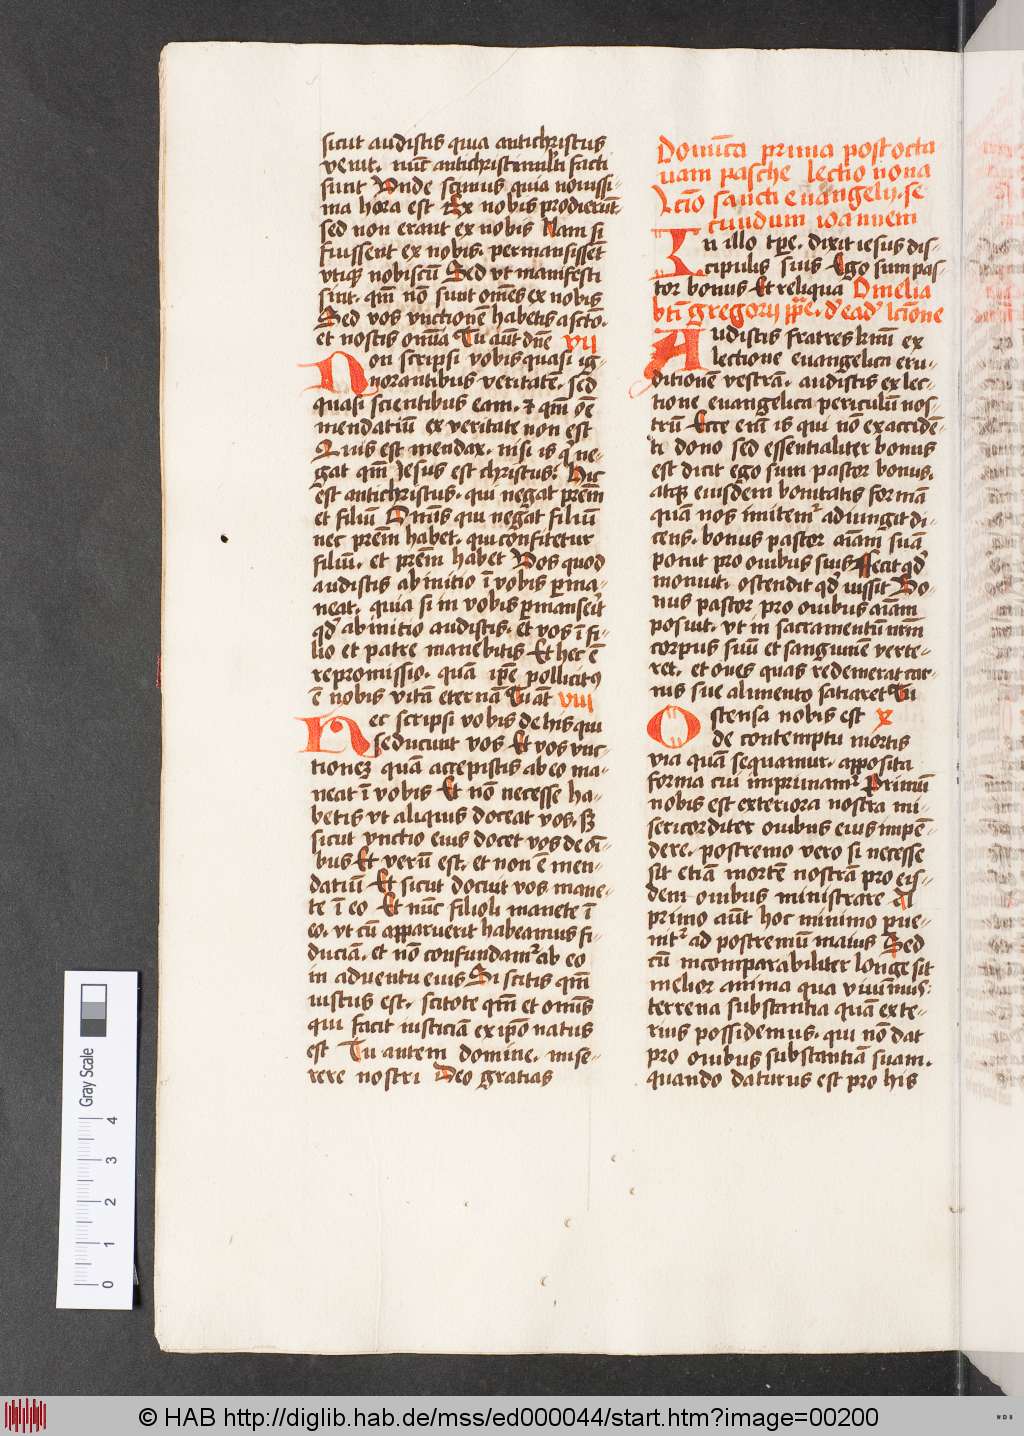 sicut audistis quia antichristus
venit. nūc antichristi multi facti
sunt Vnde scimus quia nouissi-
ma hora est Ex nobis prodierūt
sed non erant ex nobis Nam si
fuissent ex nobis. permansissēt
vtiqȝ nobiscū Sed vt manifesti
sint. qm̄ nō sunt om̄es ex nobis
Sed vos vnctionē habetis a scto.
et nostis omīa Tu aūt dn̄e vij
Non scripsi vobis quasi ig-
norantibus veritatē. sed
quasi scientibus eam. et qm̄ oē
mendatiū ex veritate non est
Quis est mendax. nisi is qͥ ne-
gat qm̄ Jesus est christus: Hic
est antichristus. qui negat prēm
et filiū Om̄is qui negat filiū
nec prēm habet. qui confitetur
filiū. et prēm habet Vos quod
audistis ab initio ī vobis pma-
neat. quia si in vobis pmanserit
qd̓ ab initio audistis. et vos ī fi-
lio et patre manebitis Et hec ē
repromissio. quā ip̄e pollicitꝰ
ē nobis vitā eternā Tu aūt viij
Nec scripsi vobis de his qui
seducunt vos Et vos vnc-
tioneȝ quā accepistis ab eo ma-
neat ī vobis Et nō necesse ha-
betis vt aliquis doceat vos. sȝ
sicut vnctio eius docet vos de oī-
bus Et verū est. et non ē men-
datiū Et sicut docuit vos mane-
te ī eo Et nūc filioli manete ī
eo. vt cū apparuerit habeamus fi-
duciā. et nō confundamͬ ab eo
in aduentu eius Si scitis qm̄
iustus est. scitote qm̄ et om̄is
qui facit iusticiā ex ip̄o natus
est Tu autem domine. mise-
rere nostri Deo gratias
Domīica prima post octa
uam pasche lectio nona
Lc̄io sancti euangelij. se
cundum ioannem
In illo tp̄e. dixit iesus dis-
cipulis suis Ego sum pas-
tor bonus Et reliqua Omelia
bt̄i gregorij pp̄e. d̓ ead̓ lc̄ione
Audistis fratres kr̄mi ex
lectione euangelica eru-
ditionē vestrā. audistis ex lec-
tione euangelica periculū nos-
trū Ecce enī is qui nō ex accidē-
ti dono sed essentialiter bonus
est dicit ego sum pastor bonus.
atqȝ eiusdem bonitatis formā
quā nos imitemͬ adiungit di-
cens. bonus pastor aīam suā
ponit pro ouibus suis Fecit qd̓
monuit. ostendit qd̓ iussit Bo-
nus pastor pro ouibus aīam
posuit. vt in sacramentū nr̄m
corpus suū et sanguinē verte-
ret. et oues quas redemerat car-
nis sue alimento satiaret Tu
Ostensa nobis est x
de contemptu mortis
via quā sequamur. apposita
forma cui imprimamͬ Primū
nobis est exteriora nostra mi-
sericorditer ouibus eius impē-
dere. postremo vero si necesse
sit etiā mortē nostrā pro eis-
dem ouibus ministrare A
primo aūt hoc minimo pue-
nitͬ ad postremū maius Sed
cū incomparabiliter longe sit
melior anima qua viuimus:
terrena substantia quā exte-
rius possidemus. qui nō dat
pro ouibus substantiā suam.
quando daturus est pro his
Gray Scale
0 1 2 3 4
© HAB http://diglib.hab.de/mss/ed000044/start.htm?image=00200